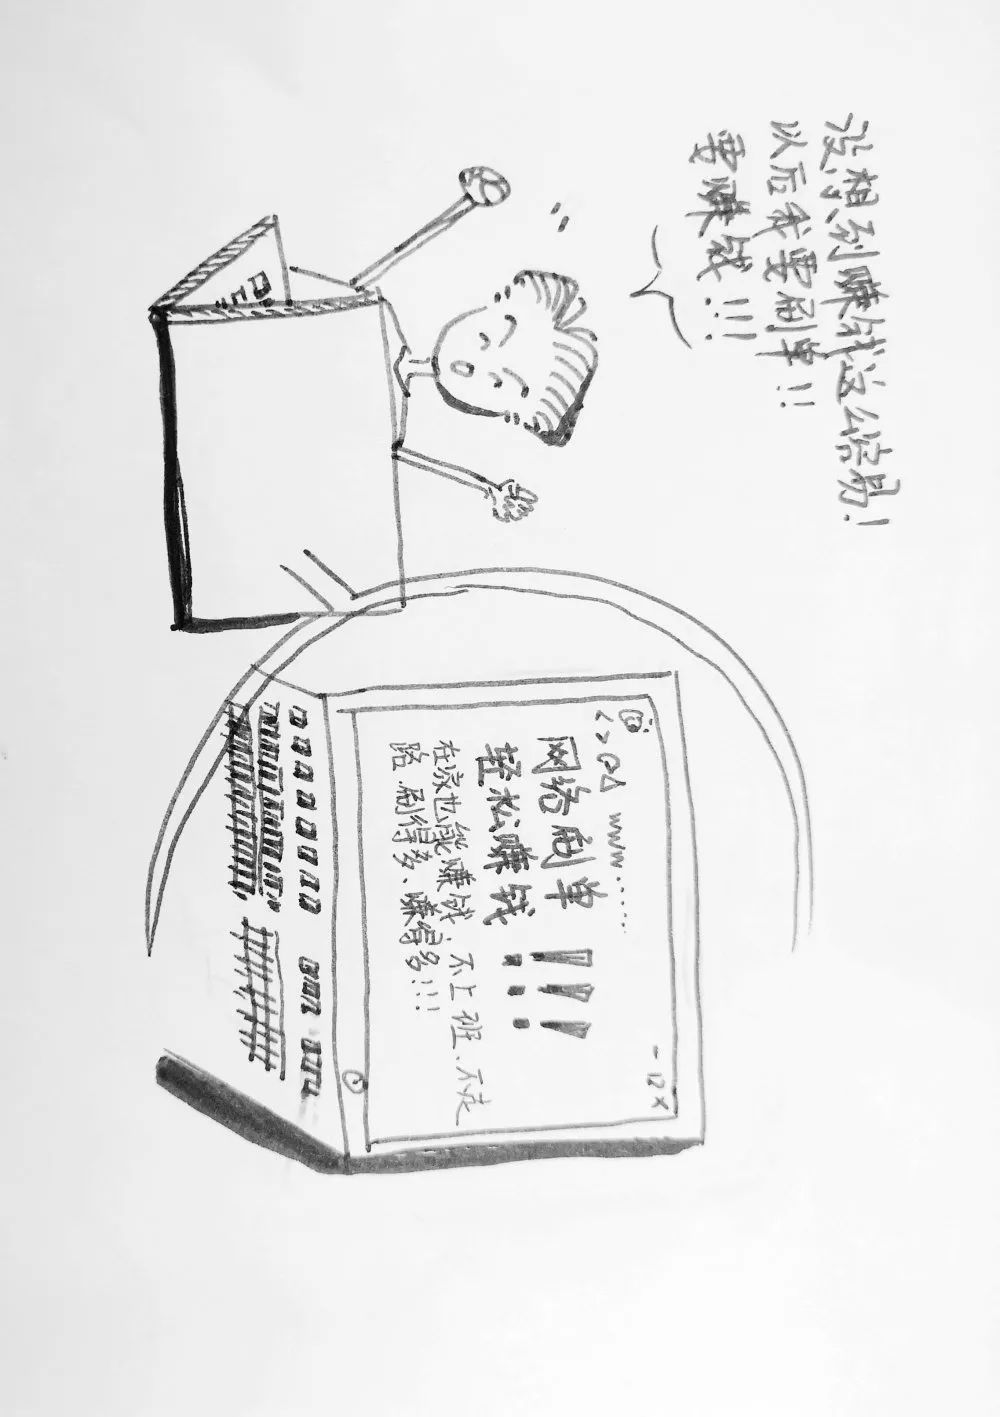 没想到赚钱这么容易!
以后我要刷单!!
要赚钱!!!
www.......
网络刷单
轻松赚钱!!!
在家也能赚钱,不上班、不走
路.刷得多、赚得多!!!